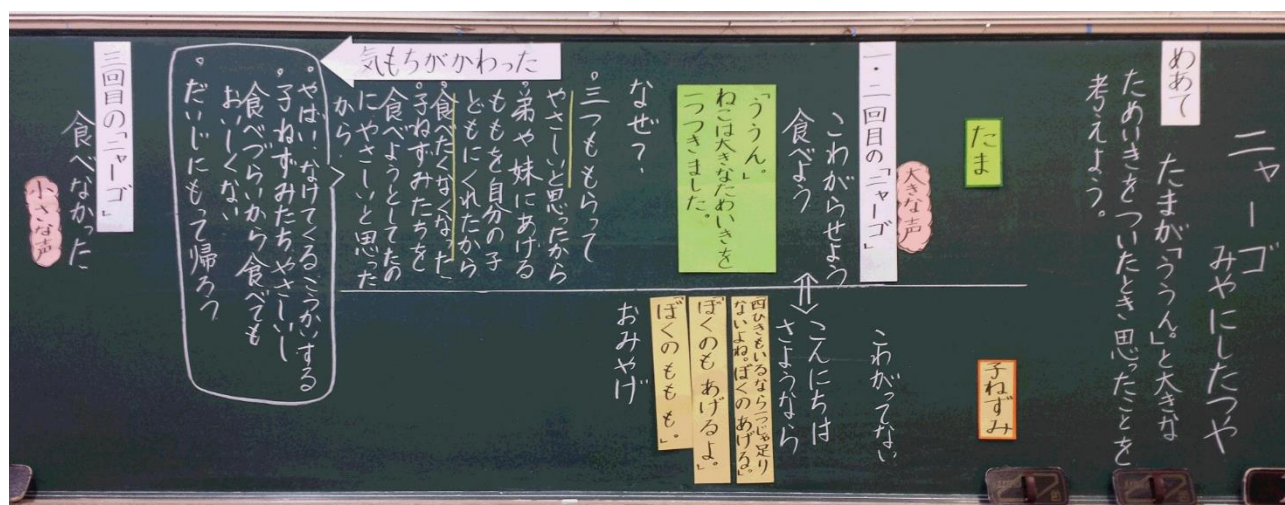 ニャーゴ
みやにしたつや
めあて
たまが「ううん。」と大きな
ためいきをついたとき思ったことを
考えよう。
たま
子ねずみ
一・二回目の「ニャーゴ」
大きな声
こわがらせよう
食べよう
こわがってない
こんにちは
さようなら
「ううん。」
ねこは大きなためいきを
一つつきました。
四ひきもいるなら一つじゃ足り
ないよね。ぼくのあげる。」
「ぼくのも あげるよ。」
「ぼくの ももも。」
おみやげ
なぜ?
気もちがかわった
・三つももらって
やさしいと思ったから
・弟や妹にあげる
ももを自分の子
どもにくれたから
・食べたくなくなった
・子ねずみたちを
食べようとしてたの
にやさしいと思った
から
・やばい、なけてくるこうかいする
・子ねずみたちやさしいし
食べづらいから食べても
おいしくない
・だいじにもって帰ろう
三回目の「ニャーゴ」
食べなかった
小さな声